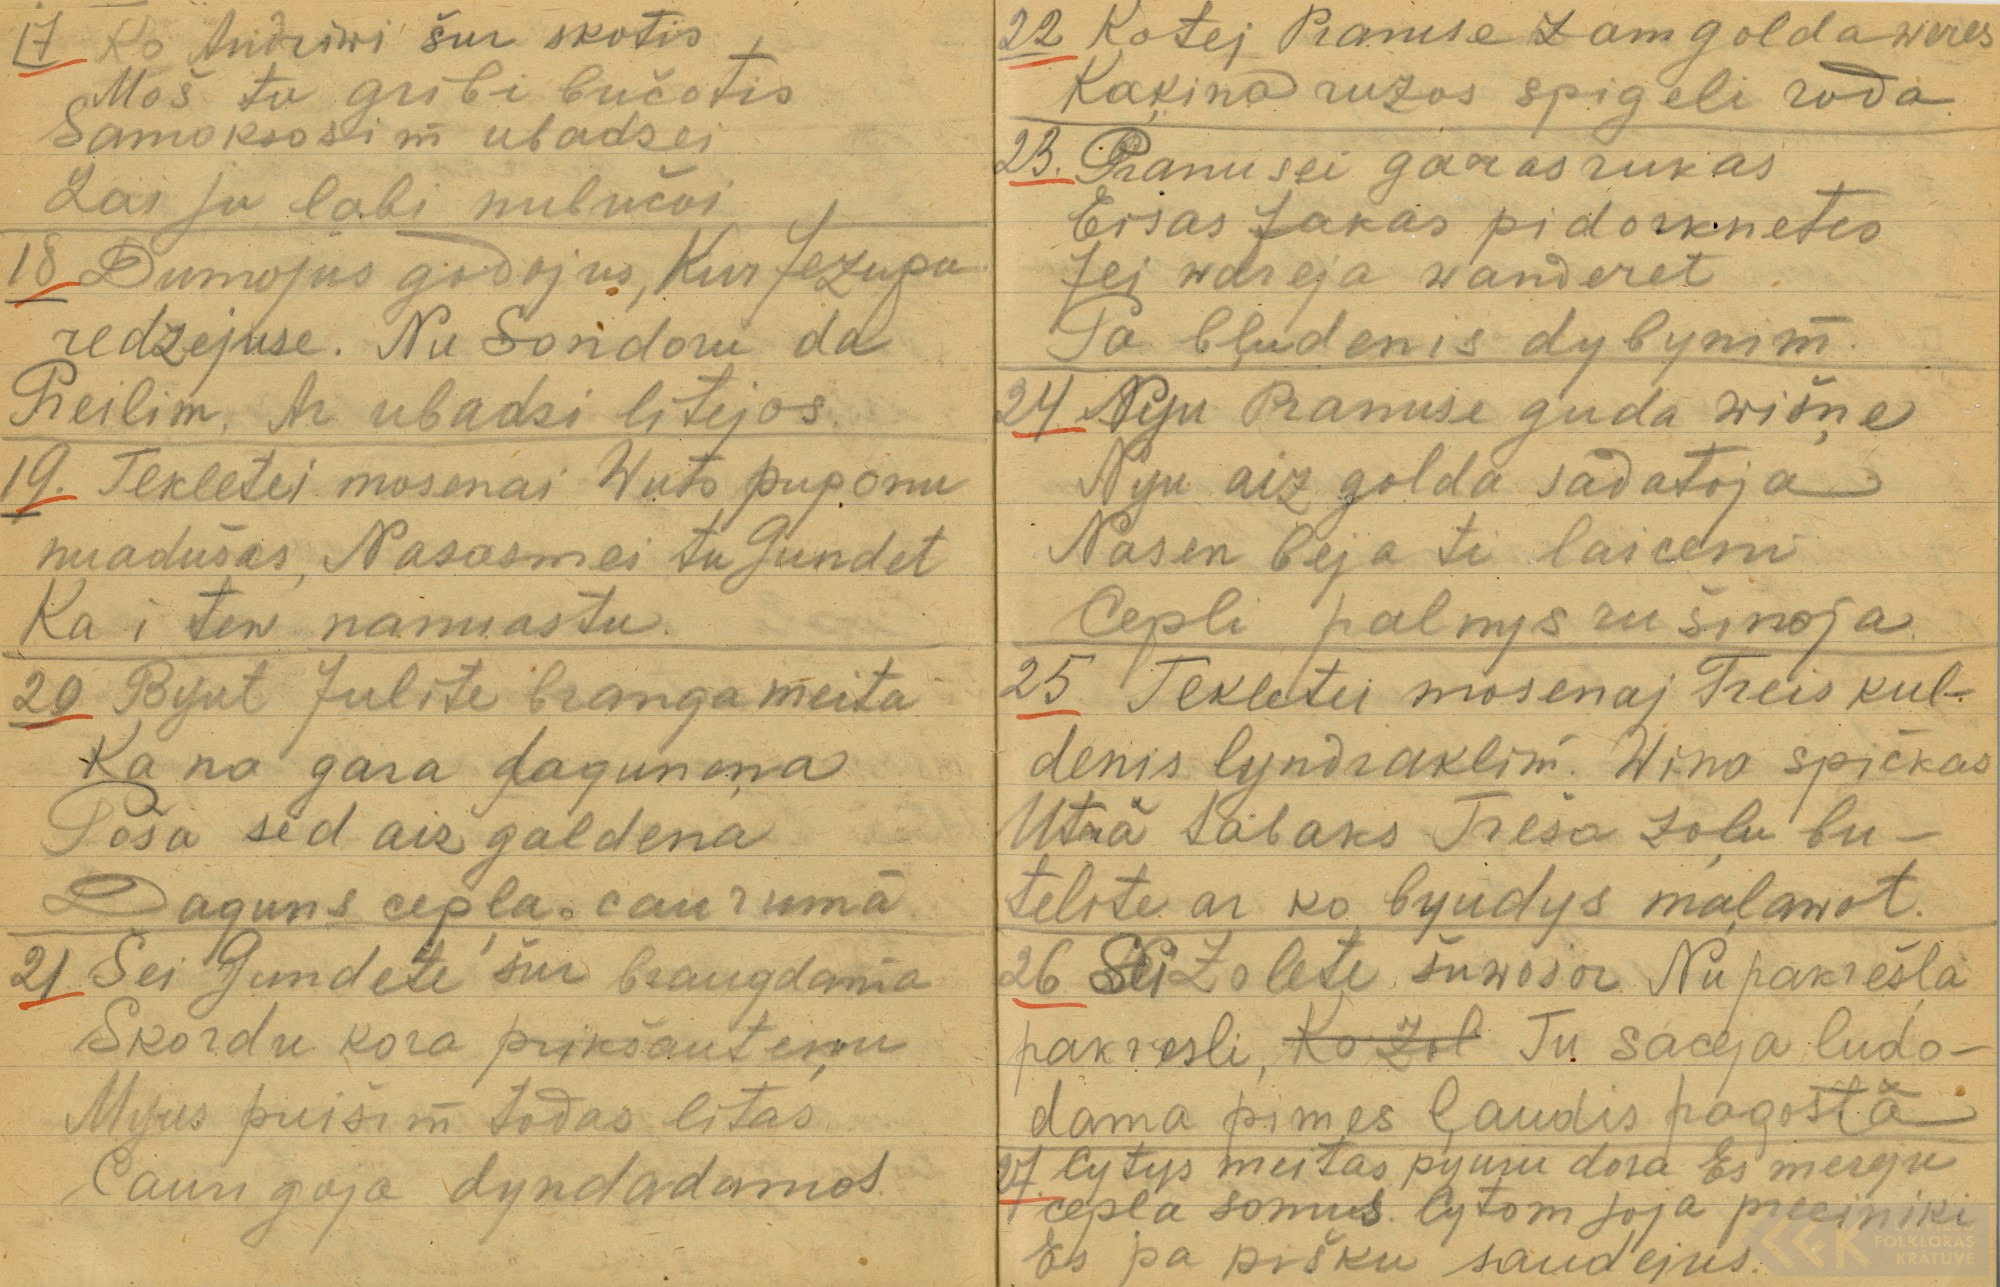 17 Ko Andriwi šur skotis
Moš tu gribi bučotis
Samoksosim ubadsei
Lai ju labi nubučoi
18 Dumojus godojus, Kur Jezupu
redzejuse. Nu Sondoru da
Preilim. Ar ubadsi litejos.
19. Tekletei mosenai Wuts puponu
nuadušas, Nasasmei tu Gundet
Ka i tew namuastu.
20 Byut Julite branga meita
Ka na gara dagunena
Poša sēd aiz galdena
Daguns cepļa caurumā
21 Šei Gundete šur braugdama
Skordu kora prikšautenu
Myus puišim todas litas
Cauri goja dyndadamos
22 Kotej Pranuse zam golda weres
Kakina ruzos spigeli roda
23. Pranusei garas rukas
Eisas Jakas pidorknetos
Jei wareja wanderet
Pa bļudenis dybynim.
24. Nyu Pranuse guda wišņe
Nyu aiz golda sadatoja
Nasen beja ti laiceni
Cepli palnys rušinoja.
25 Tekletei mosenaj Treis kul-
denis lyndraklim. Wino spičkas
Utrā tabaks Treša zoļu bu-
telite ar ko byudys maļawot.
26 Šei Zolete šuwosor Nu pakrešla
pakresli, Ko Zol Tu saceja ludo-
dama pimes ļaudis pagostā
27 Cytys meitas pyuru dora Es mereju
cepļa somus. Cytom joja preciniki
Es pa pišku saudejus.
FOLKLORAS
KRĀTUVE